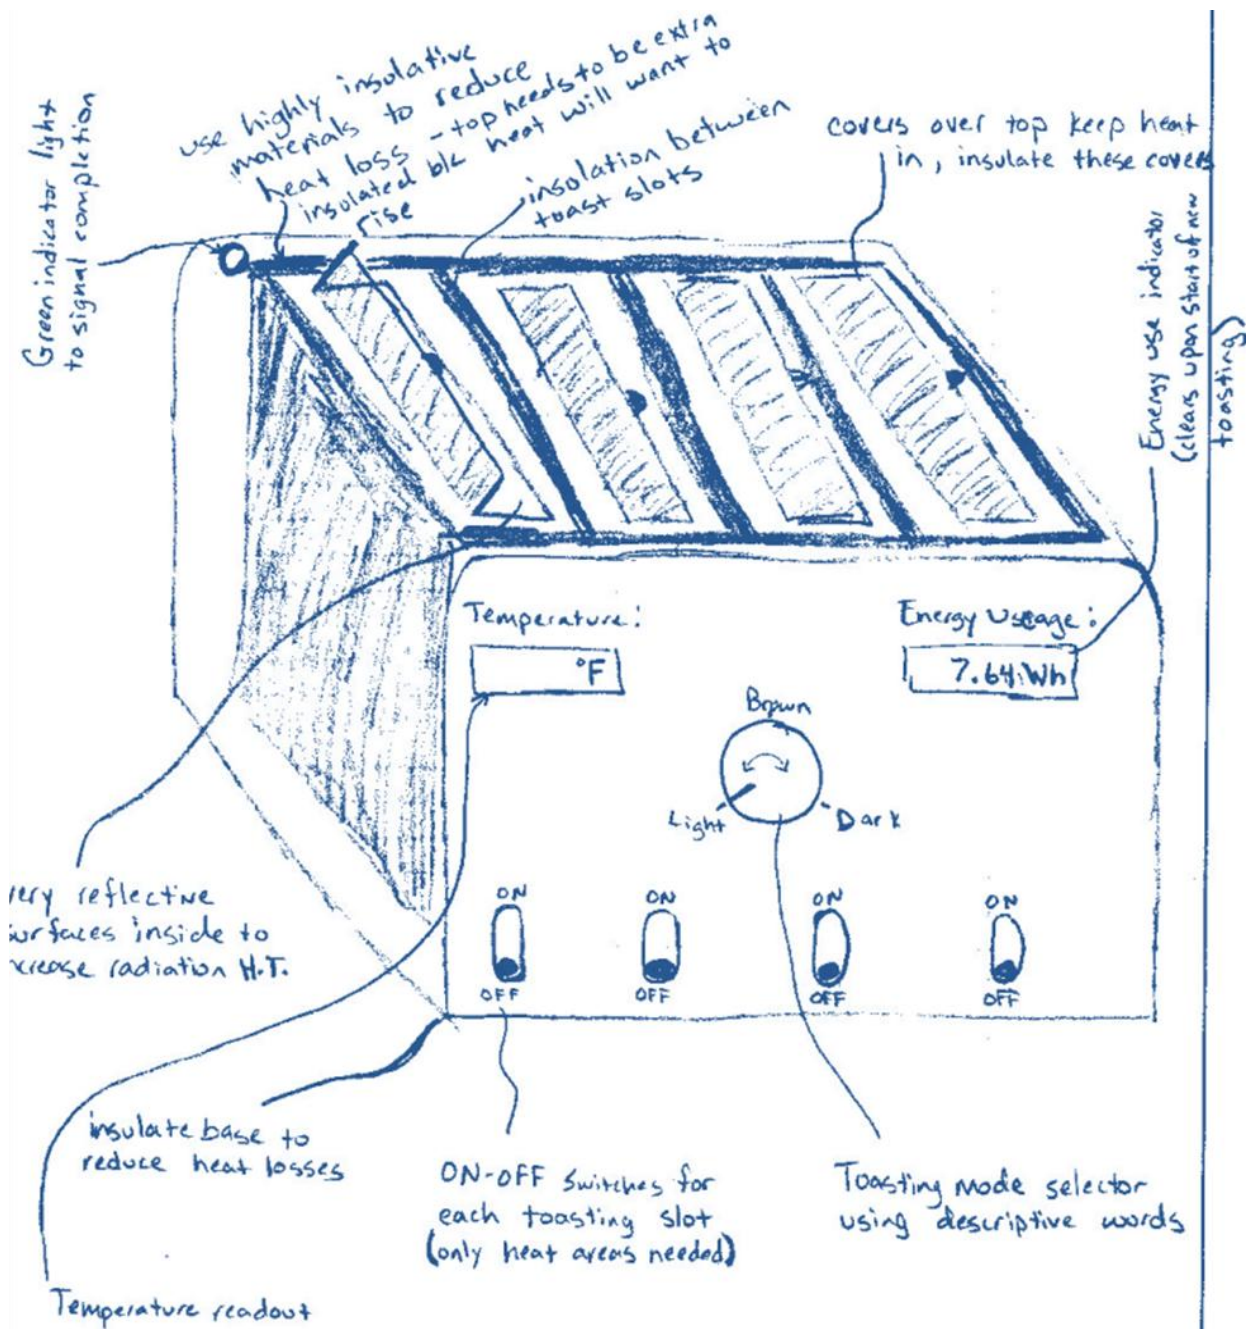 Green indicator light
to signal completion
use highly insulative
materials to reduce
heat loss - top needs to be extra
insulated b/c heat will want to
rise
insulation between
toast slots
covers over top keep heat
in, insulate these covers
Energy use indicator
(clears upon start of new
toasting)
Temperature:
°F
Energy Useage:
7.64 Wh
Brown
Light
Dark
very reflective
surfaces inside to
increase radiation H.T.
ON
ON
ON
ON
OFF
OFF
OFF
OFF
insulate base to
reduce heat losses
ON-OFF switches for
each toasting slot
(only heat areas needed)
Toasting mode selector
using descriptive words
Temperature readout